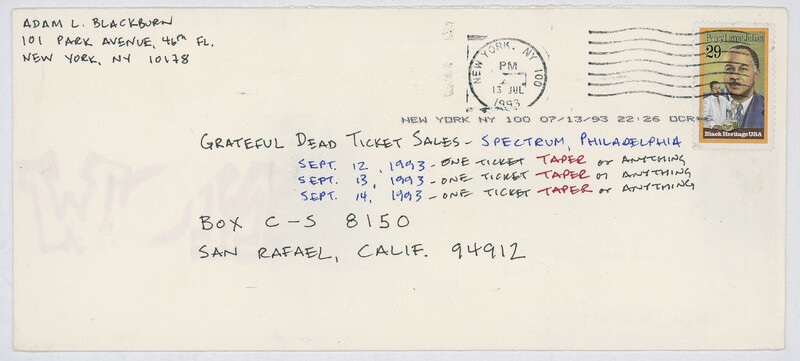 ADAM L. BLACKBURN
101 PARK AVENUE, 46th FL.
NEW YORK, NY 10178
NEW YORK, NY 100
PM
13 JUL
1993
29
Percy Lavon Julian
Black Heritage USA
NEW YORK NY 100 07/13/93 22:26 OCR#
GRATEFUL DEAD TICKET SALES - SPECTRUM, PHILADELPHIA
SEPT. 12, 1993 - ONE TICKET TAPER or ANYTHING
SEPT. 13, 1993 - ONE TICKET TAPER or ANYTHING
SEPT. 14, 1993 - ONE TICKET TAPER or ANYTHING
BOX C-S 8150
SAN RAFAEL, CALIF. 94912